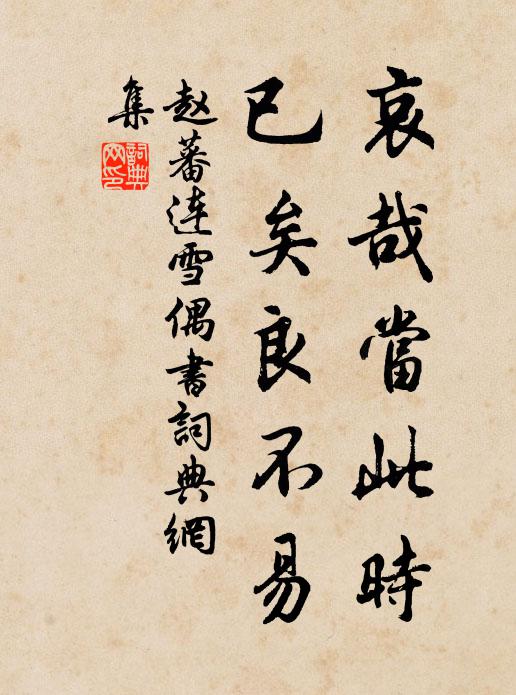 哀哉當此時
已矣良不易
赵蕃連雪偶書詞典網
集
詞典
网印